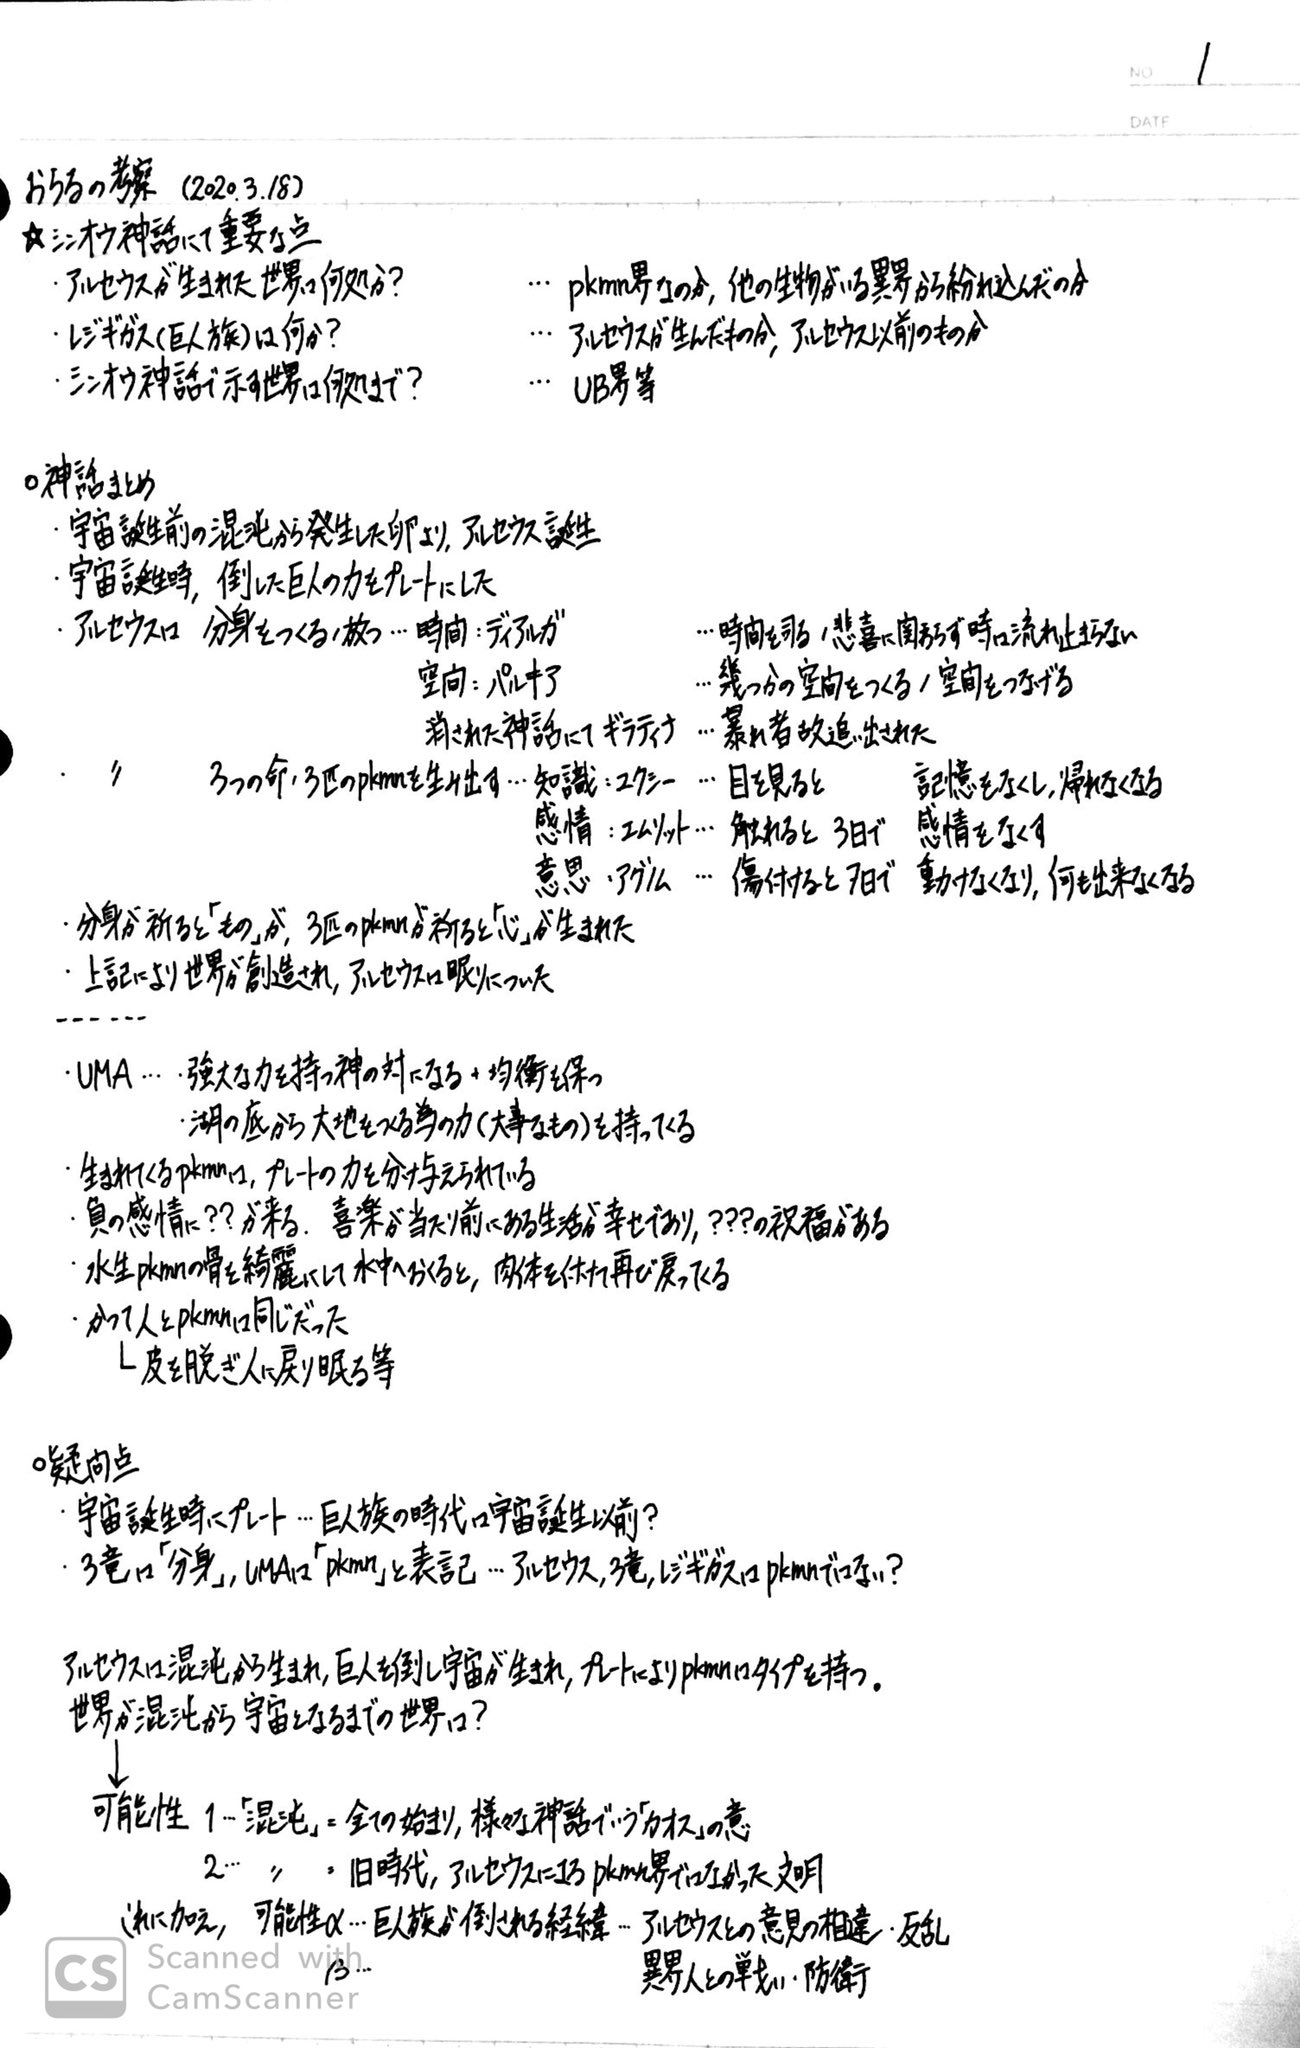 NO 1
DATE
おらるの考察 (2020.3.18)
☆シンオウ神話にて重要な点
・アルセウスが生まれた世界は何処か? … pkmn界なのか, 他の生物がいる異界から紛れ込んだのか
・レジギガス(巨人族)は何か? … アルセウスが生んだものか, アルセウス以前のものか
・シンオウ神話で示す世界は何処まで? … UB界等
○神話まとめ
・宇宙誕生前の混沌から発生した卵より, アルセウス誕生
・宇宙誕生時, 倒した巨人の力をプレートにした
・アルセウスは 分身をつくる/放つ … 時間:ディアルガ … 時間を司る/悲喜に関わらず時は流れ止まらない
空間:パルキア … 幾つかの空間をつくる/空間をつなげる
消された神話にて ギラティナ … 暴れ者故追い出された
・ 〃 3つの命・3匹のpkmnを生み出す … 知識:ユクシー … 目を見ると 記憶をなくし, 帰れなくなる
感情:エムリット … 触れると 3日で 感情をなくす
意思・アグノム … 傷付けると 7日で 動けなくなり, 何も出来なくなる
・分身が祈ると「もの」が, 3匹のpkmnが祈ると「心」が生まれた
・上記により世界が創造され, アルセウスは眠りについた
------
・UMA … ・強大な力を持つ神の対になる + 均衡を保つ
・湖の底から大地をつくる為の力(大事なもの)を持ってくる
・生まれてくるpkmnは, プレートの力を分け与えられている
・負の感情に??が来る. 喜楽が当たり前にある生活が幸せであり, ???の祝福がある
・水生pkmnの骨を綺麗にして水中へおくると, 肉体を付けて再び戻ってくる
・かつて人とpkmnは同じだった
└皮を脱ぎ人に戻り眠る等
○疑問点
・宇宙誕生時にプレート … 巨人族の時代は宇宙誕生以前?
・3竜は「分身」, UMAは「pkmn」と表記 … アルセウス, 3竜, レジギガスはpkmnではない?
アルセウスは混沌から生まれ, 巨人を倒し宇宙が生まれ, プレートによりpkmnはタイプを持つ.
世界が混沌から宇宙となるまでの世界は?
↓
可能性 1…「混沌」= 全ての始まり, 様々な神話でいう「カオス」の意
2… 〃 = 旧時代, アルセウスによるpkmn界ではなかった文明
これに加え, 可能性α … 巨人族が倒される経緯 … アルセウスとの意見の相違・反乱
β … 異界人との戦い・防衛
CS Scanned with CamScanner